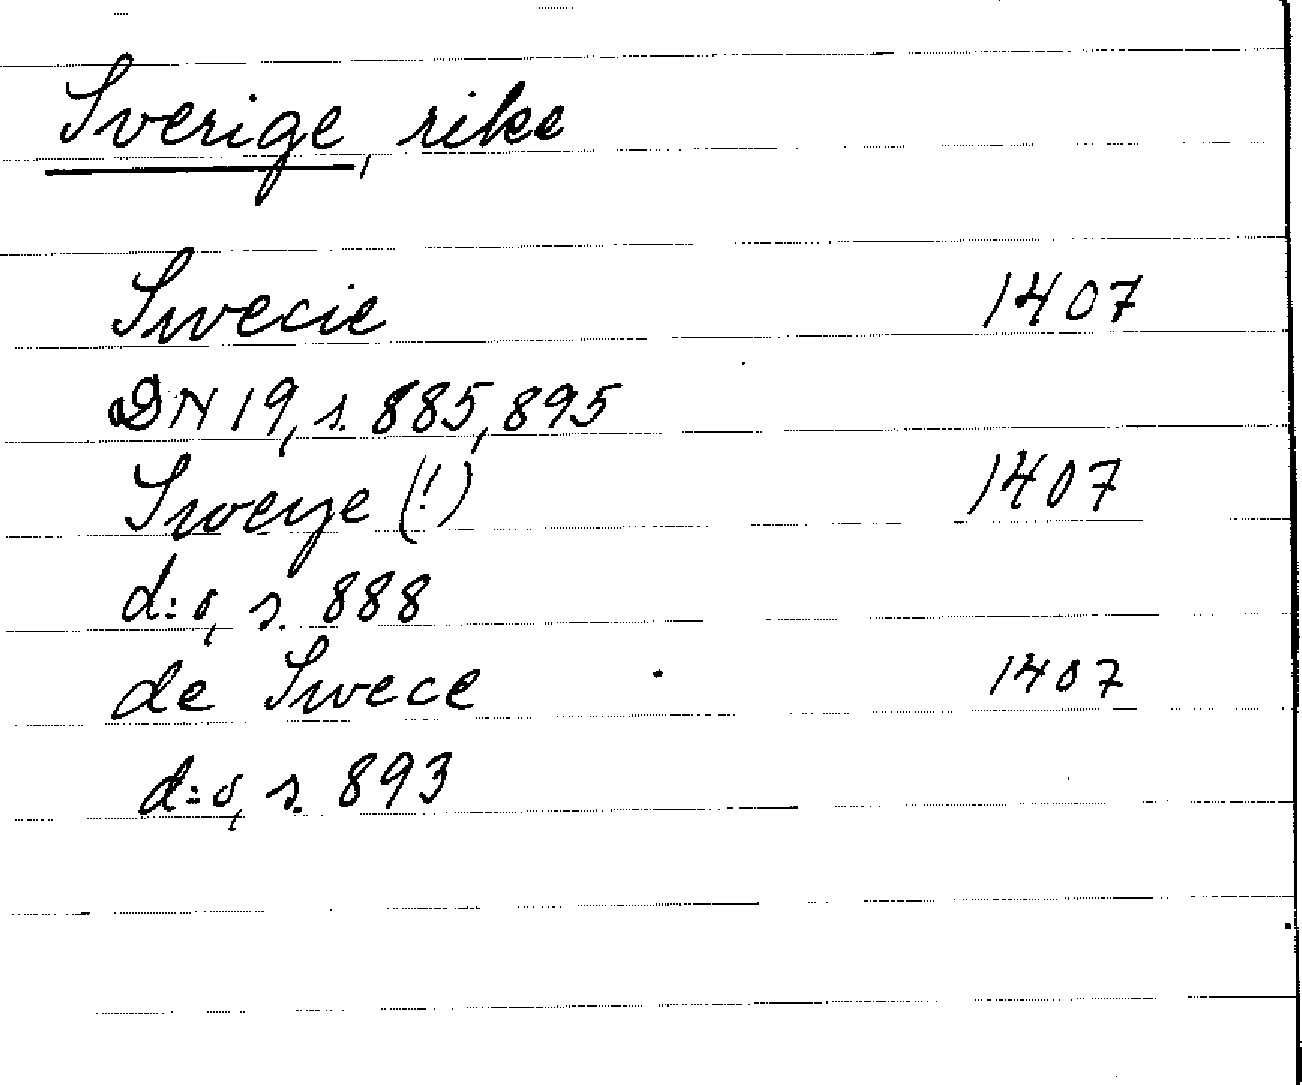 Sverige, rike
Swecie 1407
DN 19, s. 885, 895
Sweye (!) 1407
d:o, s. 888
de Swece 1407
d:o, s. 893